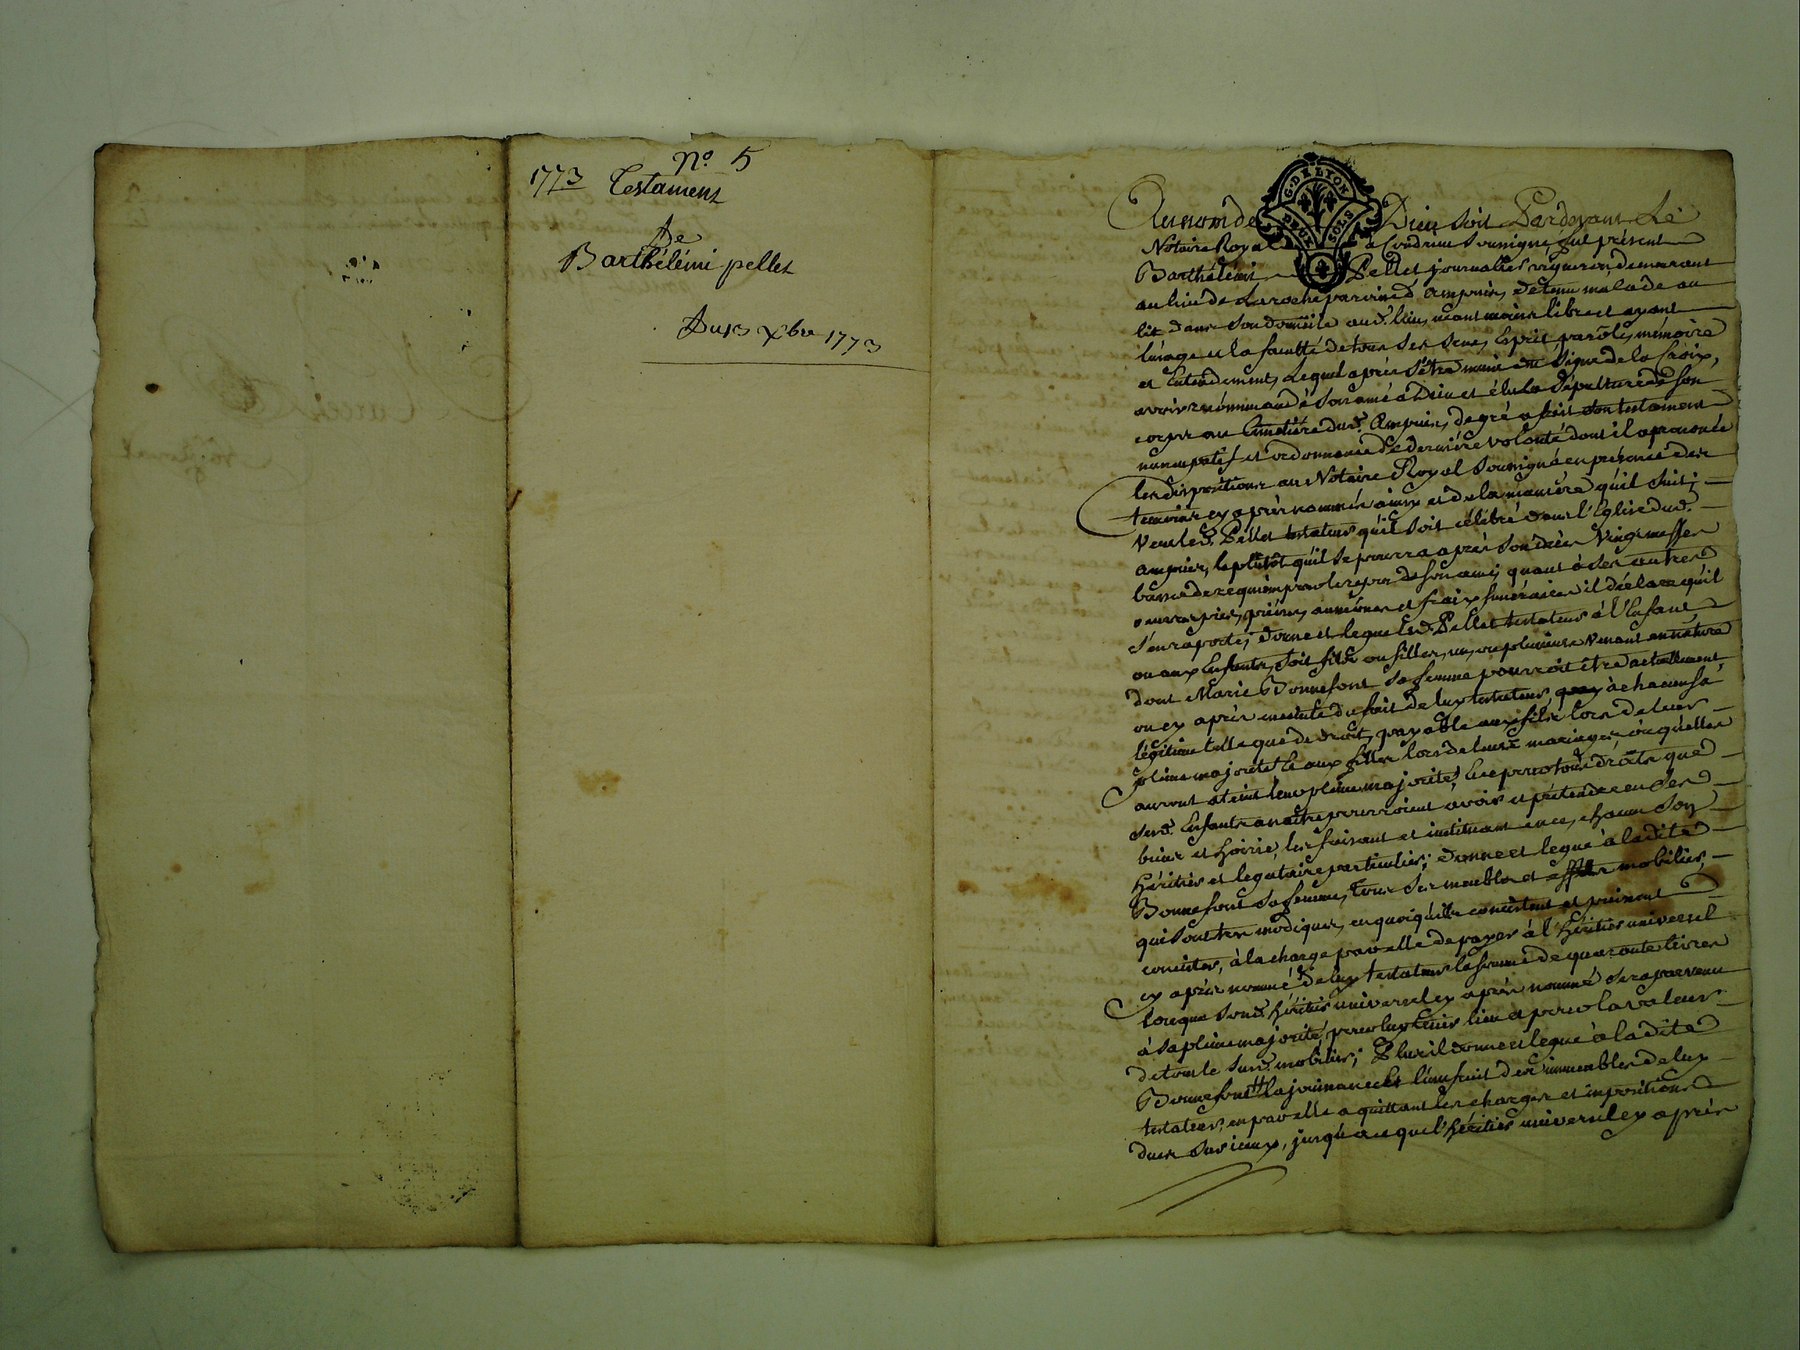 nº. 5
1773 Testament
De
Barthélémi pellet
Du 13 xbre 1773
G. DE LYON
DEUX SOLS
Au nom de Dieu soit Pardevant Le
Notaire Royal a Condrieu soussigné fut présent
Barthélémi Pellet journalier vigneron demeurant
au lieu de Laroche paroisse d'Ampuis, detenu malade au
lit dans son domicile aud. lieu, néantmoins libre et ayant
l'usage et la faculté de tous ses sens, Esprit, parole, mémoire
et Entendement, Lequel après s'être muni du signe de la Croix,
avoir recommandé son ame à Dieu et élu la sépulture de son
corps au Cimetière dud. Ampuis, de gré a fait son testament
nuncupatif et ordonnance de dernière volonté dont il a prononcé
les dispositions au Notaire Royal soussigné en présence des
temoins cy après nommés ainsy et de la manière qu'il suit;
Veut led. Pellet testateur qu'il soit célébré dans l'Eglise dud.
Ampuis, le plutôt qu'il se pourra après son décès Vingt messes
basses de requiem pour le repos de son ame; quant à ses autres
œuvres pies, prières, aumones et fraix funéraires il déclare qu'il
s'en raporte; donne et legue led. Pellet testateur à l'Enfant
ou aux Enfants, soit fils ou filles, un, ou plusieurs venant en nature
dont Marie Bonnefont sa femme pourroit être actuellement,
ou cy après enceinte du fait de luy testateur, à chacun sa
légitime telle que de droit, payable aux fils lors de leur
pleine majorité et aux filles lors de leurs mariages, ou qu'elles
auront ateint leur pleine majorité, Et ce pour tous droits que
sesd. Enfants a naître pourroient avoir et prétendre en ses
biens et hoirie, les faisant et instituant en ce, chacun son
héritier et legataire particulier; donne et legue à ladite
Bonnefont sa femme, tous ses meubles et effets mobiliers,
qui sont tres modiques, en quoi qu'ils consistent et puissent
consister, à la charge par elle de payer à l'héritier universel
cy après nommé de luy testateur la somme de quarante livres
lorsque sond. héritier universel cy après nommé sera parvenu
à sa pleine majorité, pour luy tenir lieu et pour la valeur
de tout le susd. mobilier; Plus il donne et legue à la dite
Bonnefont la jouissance et l'usufruit des immeubles de luy
testateur, en par elle aquittant les charges et impositions
dues sur iceux, jusqu'à ce que l'héritier universel cy après